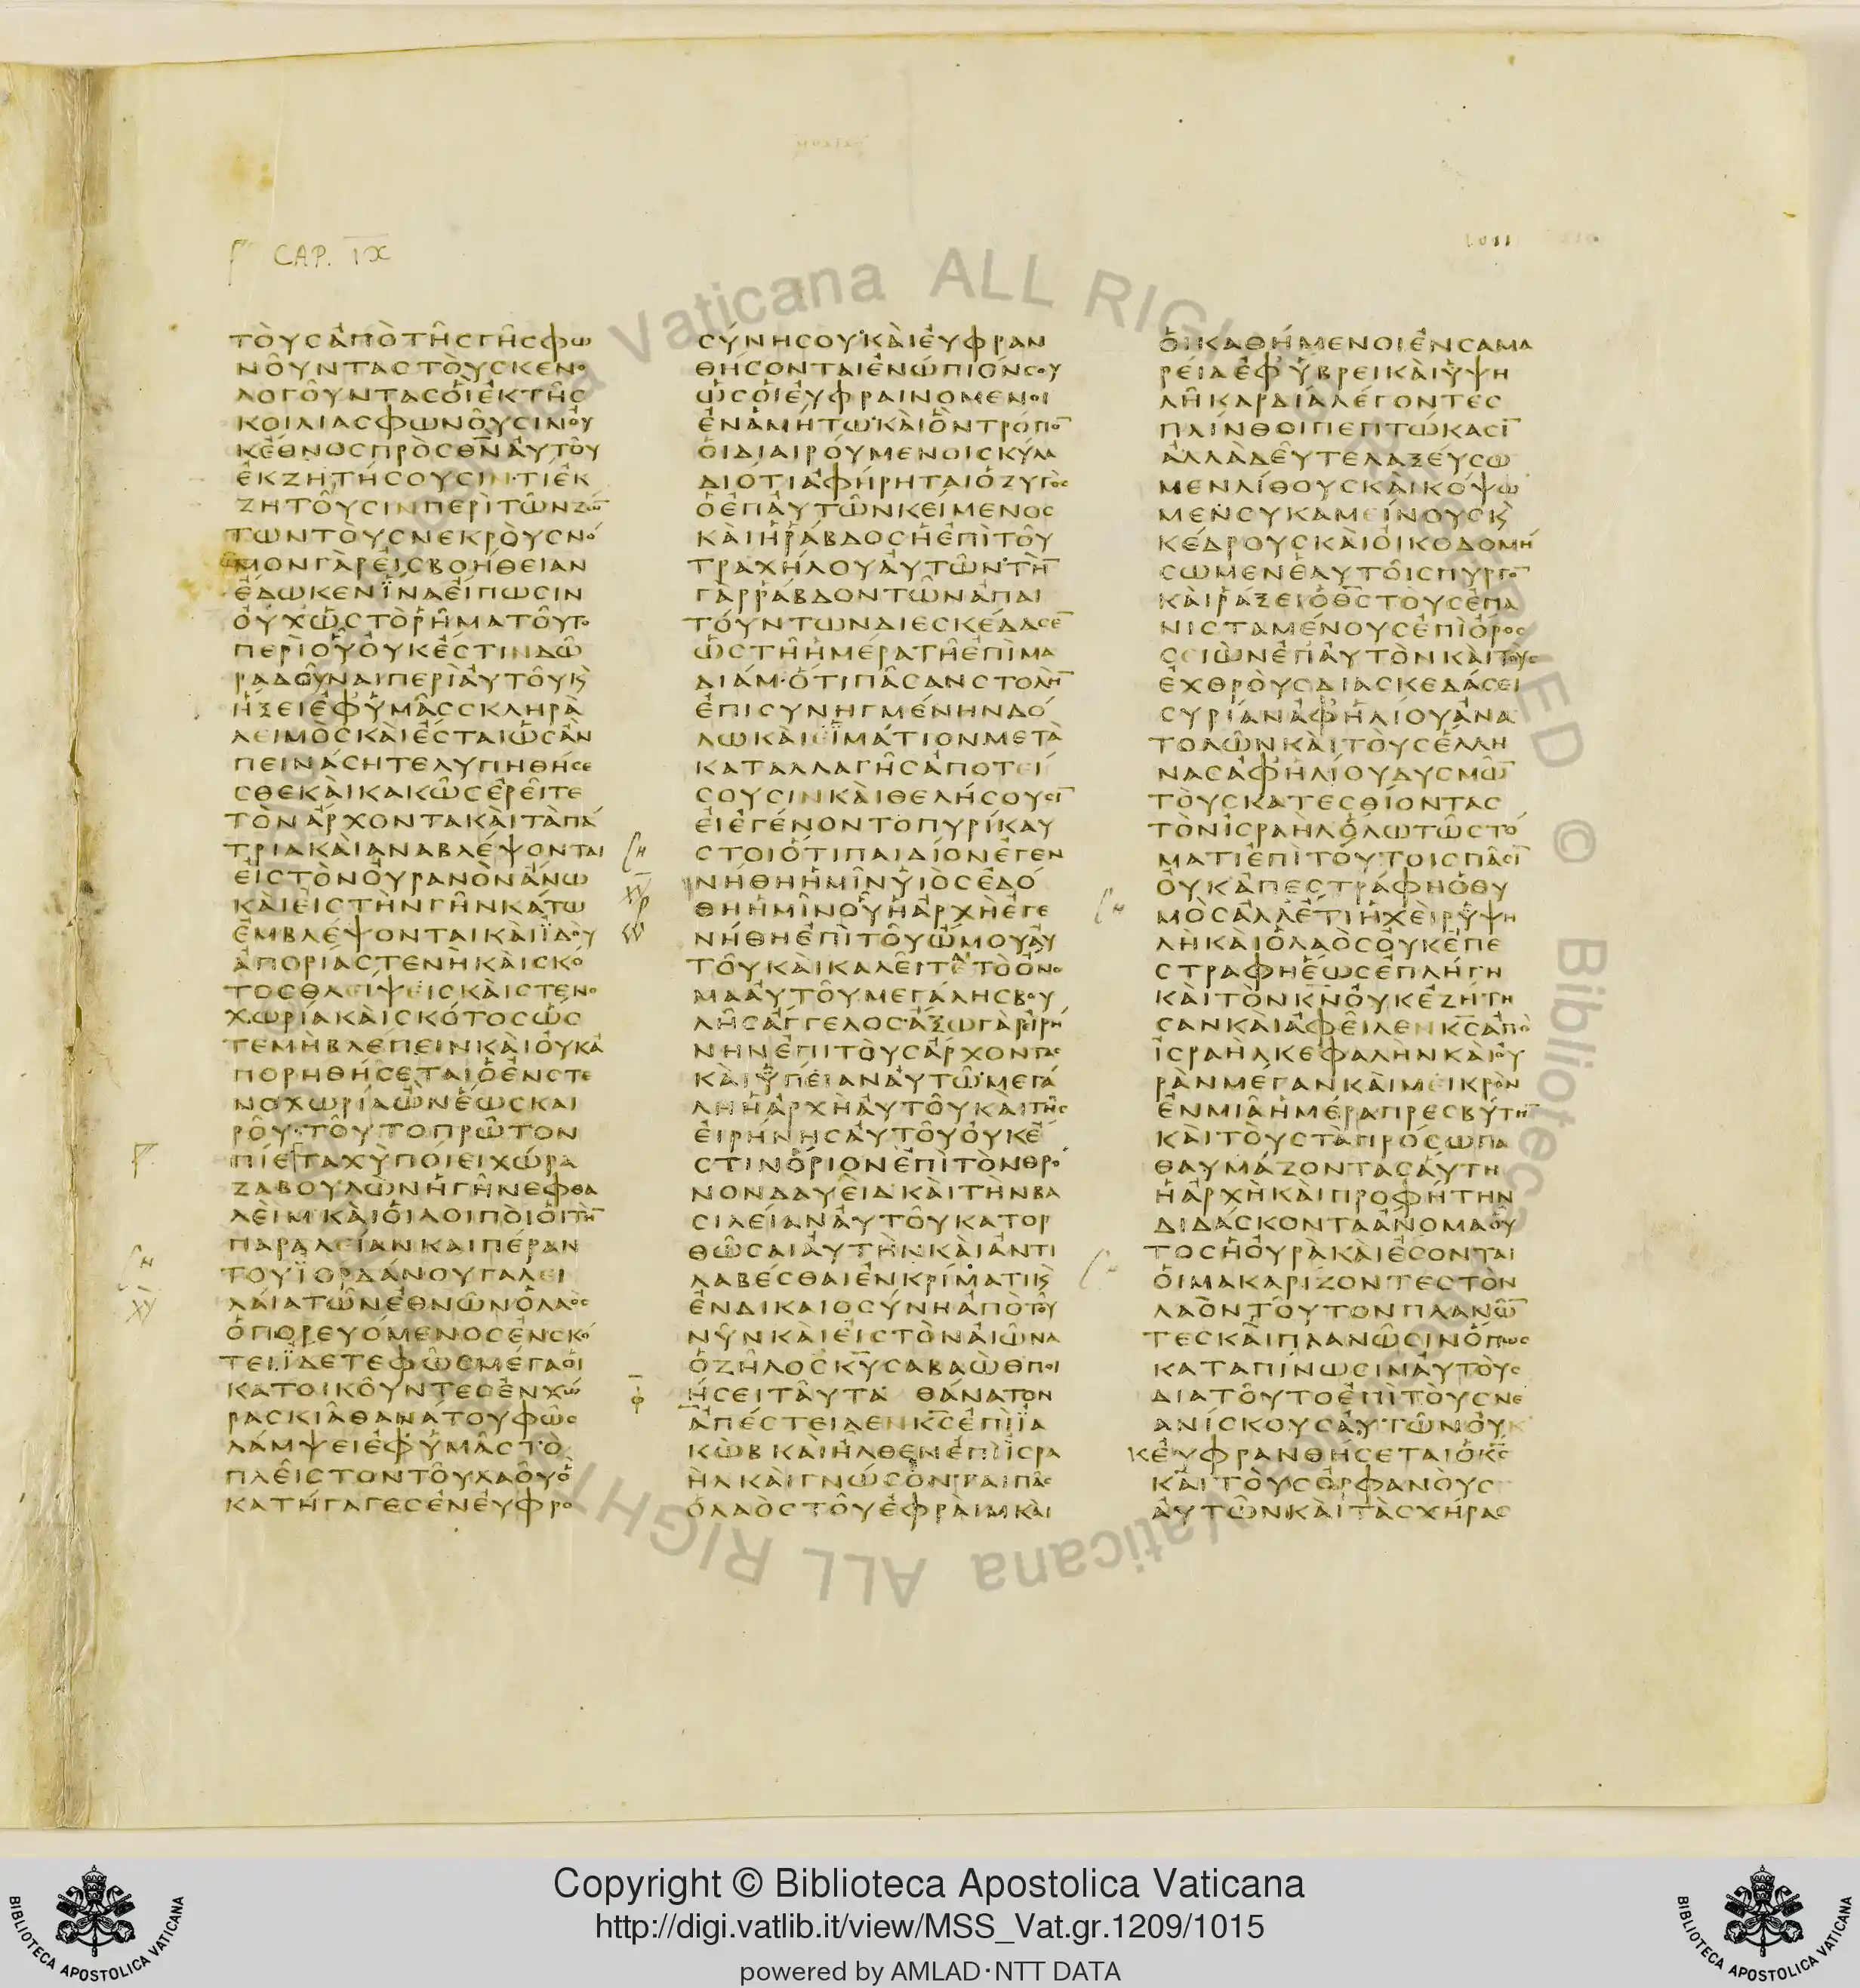 CAP. IX
ΤΟΥϹΑΠΟΤΗϹΓΗϹΦΩ
ΝΟΥΝΤΑϹΤΟΥϹΚΕΝΟ
ΛΟΓΟΥΝΤΑϹΟΙΕΚΤΗϹ
ΚΟΙΛΙΑϹΦΩΝΟΥϹΙΝΟΥ
ΚΕΘΝΟϹΠΡΟϹΘΝΑΥΤΟΥ
ΕΚΖΗΤΗϹΟΥϹΙΝ·ΤΙΕΚ
ΖΗΤΟΥϹΙΝΠΕΡΙΤΩΝΖΩ
ΤΩΝΤΟΥϹΝΕΚΡΟΥϹΝΟ
ΜΟΝΓΑΡΕΙϹΒΟΗΘΕΙΑΝ
ΕΔΩΚΕΝΪΝΑΕΙΠΩϹΙΝ
ΟΥΧΩϹΤΟΡΗΜΑΤΟΥΤΟ
ΠΕΡΙΟΥΟΥΚΕϹΤΙΝΔΩ
ΡΑΔΟΥΝΑΙΠΕΡΙΑΥΤΟΥΚ
ΗΞΕΙΕΦΥΜΑϹϹΚΛΗΡΑ
ΛΕΙΜΟϹΚΑΙΕϹΤΑΙΩϹΑΝ
ΠΕΙΝΑϹΗΤΕΛΥΠΗΘΗϹΕ
ϹΘΕΚΑΙΚΑΚΩϹΕΡΕΙΤΕ
ΤΟΝΑΡΧΟΝΤΑΚΑΙΤΑΠΑ
ΤΡΙΑΚΑΙΑΝΑΒΛΕΨΟΝΤΑΙ
ΕΙϹΤΟΝΟΥΡΑΝΟΝΑΝΩ
ΚΑΙΕΙϹΤΗΝΓΗΝΚΑΤΩ
ΕΜΒΛΕΨΟΝΤΑΙΚΑΙΪΔΟΥ
ΑΠΟΡΙΑϹΤΕΝΗΚΑΙϹΚΟ
ΤΟϹΘΛΕΙΨΕΙϹΚΑΙϹΤΕΝΟ
ΧΩΡΙΑΚΑΙϹΚΟΤΟϹΩϹ
ΤΕΜΗΒΛΕΠΕΙΝΚΑΙΟΥΚΑ
ΠΟΡΗΘΗϹΕΤΑΙΟΕΝϹΤΕ
ΝΟΧΩΡΙΑΩΝΕΩϹΚΑΙ
ΡΟΥ·ΤΟΥΤΟΠΡΩΤΟΝ
ΠΙΕΤΑΧΥΠΟΙΕΙΧΩΡΑ
ΖΑΒΟΥΛΩΝΗΓΗΝΕΦΘΑ
ΛΕΙΜΚΑΙΟΙΛΟΙΠΟΙΟΙΤΗ
ΠΑΡΑΛΕΙΑΝΚΑΙΠΕΡΑΝ
ΤΟΥΪΟΡΔΑΝΟΥΓΑΛΕΙ
ΛΑΙΑΤΩΝΕΘΝΩΝΟΛΑΟϹ
ΟΠΟΡΕΥΟΜΕΝΟϹΕΝϹΚΟ
ΤΕΙ.ΪΔΕΤΕΦΩϹΜΕΓΑΟΙ
ΚΑΤΟΙΚΟΥΝΤΕϹΕΝΧΩ
ΡΑϹΚΙΑΘΑΝΑΤΟΥΦΩϹ
ΛΑΜΨΕΙΕΦΥΜΑϹΤΟ
ΠΛΕΙϹΤΟΝΤΟΥΛΑΟΥΟ
ΚΑΤΗΓΑΓΕϹΕΝΕΥΦΡΟ
ϹΥΝΗϹΟΥΚΑΙΕΥΦΡΑΝ
ΘΗϹΟΝΤΑΙΕΝΩΠΙΟΝϹΟΥ
ΩϹΟΙΕΥΦΡΑΙΝΟΜΕΝΟΙ
ΕΝΑΜΗΤΩΚΑΙΟΝΤΡΟΠΟ
ΟΙΔΙΑΙΡΟΥΜΕΝΟΙϹΚΥΛΑ
ΔΙΟΤΙΑΦΗΡΗΤΑΙΟΖΥΓΟϹ
ΟΕΠΑΥΤΩΝΚΕΙΜΕΝΟϹ
ΚΑΙΗΡΑΒΔΟϹΗΕΠΙΤΟΥ
ΤΡΑΧΗΛΟΥΑΥΤΩΝΤΗ
ΓΑΡΡΑΒΔΟΝΤΩΝΑΠΑΙ
ΤΟΥΝΤΩΝΔΙΕϹΚΕΔΑϹΕ
ΩϹΤΗΗΜΕΡΑΤΗΕΠΙΜΑ
ΔΙΑΜ·ΟΤΙΠΑϹΑΝϹΤΟΛΗ
ΕΠΙϹΥΝΗΓΜΕΝΗΝΔΟ
ΛΩΚΑΙΕΪΜΑΤΙΟΝΜΕΤΑ
ΚΑΤΑΛΛΑΓΗϹΑΠΟΤΕΙ
ϹΟΥϹΙΝΚΑΙΘΕΛΗϹΟΥϹΙ
ΕΙΕΓΕΝΟΝΤΟΠΥΡΙΚΑΥ
ϹΤΟΙΟΤΙΠΑΙΔΙΟΝΕΓΕΝ
ΝΗΘΗΗΜΙΝΥΙΟϹΕΔΟ
ΘΗΗΜΙΝΟΥΗΑΡΧΗΕΓΕ
ΝΗΘΗΕΠΙΤΟΥΩΜΟΥΑΥ
ΤΟΥΚΑΙΚΑΛΕΙΤΕΤΟΟΝΟ
ΜΑΑΥΤΟΥΜΕΓΑΛΗϹΒΟΥ
ΛΗϹΑΓΓΕΛΟϹ·ΑΞΩΓΑΡΕΙΡΗ
ΝΗΝΕΠΙΤΟΥϹΑΡΧΟΝΤΑϹ
ΚΑΙΥΓΕΙΑΝΑΥΤΩΜΕΓΑ
ΛΗΗΑΡΧΗΑΥΤΟΥΚΑΙΤΗϹ
ΕΙΡΗΝΗϹΑΥΤΟΥΟΥΚΕ
ϹΤΙΝΟΡΙΟΝΕΠΙΤΟΝΘΡΟ
ΝΟΝΔΑΥΕΙΔΚΑΙΤΗΝΒΑ
ϹΙΛΕΙΑΝΑΥΤΟΥΚΑΤΟΡ
ΘΩϹΑΙΑΥΤΗΝΚΑΙΑΝΤΙ
ΛΑΒΕϹΘΑΙΕΝΚΡΙΜΑΤΙΚ
ΕΝΔΙΚΑΙΟϹΥΝΗΑΠΟΤΟΥ
ΝΥΝΚΑΙΕΙϹΤΟΝΑΙΩΝΑ
ΟΖΗΛΟϹΚΥϹΑΒΑΩΘΠΟΙ
ΗϹΕΙΤΑΥΤΑ ΘΑΝΑΤΟΝ
ΑΠΕϹΤΕΙΛΕΝΚϹΕΠΙΪΑ
ΚΩΒΚΑΙΗΛΘΕΝΕΠΙΪϹΡΑ
ΗΛΚΑΙΓΝΩϹΟΝΤΑΙΠΑϹ
ΟΛΑΟϹΤΟΥΕΦΡΑΙΜΚΑΙ
ΟΙΚΑΘΗΜΕΝΟΙΕΝϹΑΜΑ
ΡΕΙΑΕΦΥΒΡΕΙΚΑΙΥΨΗ
ΛΗΚΑΡΔΙΑΛΕΓΟΝΤΕϹ
ΠΛΙΝΘΟΙΠΕΠΤΩΚΑϹΙ
ΑΛΛΑΔΕΥΤΕΛΑΞΕΥϹΩ
ΜΕΝΛΙΘΟΥϹΚΑΙΚΟΨΩ
ΜΕΝϹΥΚΑΜΕΙΝΟΥϹΚ
ΚΕΔΡΟΥϹΚΑΙΟΙΚΟΔΟΜΗ
ϹΩΜΕΝΕΑΥΤΟΙϹΠΥΡΓΟ
ΚΑΙΡΑΞΕΙΟΘϹΤΟΥϹΕΠΑ
ΝΙϹΤΑΜΕΝΟΥϹΕΠΙΟΡΟϹ
ϹΕΙΩΝΕΠΑΥΤΟΝΚΑΙΤΟΥϹ
ΕΧΘΡΟΥϹΔΙΑϹΚΕΔΑϹΕΙ
ϹΥΡΙΑΝΑΦΗΛΙΟΥΑΝΑ
ΤΟΛΩΝΚΑΙΤΟΥϹΕΛΛΗ
ΝΑϹΑΦΗΛΙΟΥΔΥϹΜΩ
ΤΟΥϹΚΑΤΕϹΘΙΟΝΤΑϹ
ΤΟΝΙϹΡΑΗΛΟΛΩΤΩϹΤΟ
ΜΑΤΙΕΠΙΤΟΥΤΟΙϹΠΑϹΙ
ΟΥΚΑΠΕϹΤΡΑΦΗΟΘΥ
ΜΟϹΑΛΛΕΤΙΗΧΕΙΡΥΨΗ
ΛΗΚΑΙΟΛΑΟϹΟΥΚΕΠΕ
ϹΤΡΑΦΗΕΩϹΕΠΛΗΓΗ
ΚΑΙΤΟΝΚΝΟΥΚΕΖΗΤΗ
ϹΑΝΚΑΙΑΦΕΙΛΕΝΚϹΑΠΟ
ΙϹΡΑΗΛΚΕΦΑΛΗΝΚΑΙΟΥ
ΡΑΝΜΕΓΑΝΚΑΙΜΕΙΚΡΟΝ
ΕΝΜΙΑΗΜΕΡΑΠΡΕϹΒΥΤΗ
ΚΑΙΤΟΥϹΤΑΠΡΟϹΩΠΑ
ΘΑΥΜΑΖΟΝΤΑϹΑΥΤΗ
ΗΑΡΧΗΚΑΙΠΡΟΦΗΤΗΝ
ΔΙΔΑϹΚΟΝΤΑΑΝΟΜΑΟΥ
ΤΟϹΗΟΥΡΑΚΑΙΕϹΟΝΤΑΙ
ΟΙΜΑΚΑΡΙΖΟΝΤΕϹΤΟΝ
ΛΑΟΝΤΟΥΤΟΝΠΛΑΝΩ
ΤΕϹΚΑΙΠΛΑΝΩϹΙΝΟΠΩϹ
ΚΑΤΑΠΙΝΩϹΙΝΑΥΤΟΥϹ
ΔΙΑΤΟΥΤΟΕΠΙΤΟΥϹΝΕ
ΑΝΙϹΚΟΥϹΑΥΤΩΝΟΥΚ
ΚΕΥΦΡΑΝΘΗϹΕΤΑΙΟΚϹ
ΚΑΙΤΟΥϹΟΡΦΑΝΟΥϹ
ΑΥΤΩΝΚΑΙΤΑϹΧΗΡΑϹ
Copyright © Biblioteca Apostolica Vaticana
http://digi.vatlib.it/view/MSS_Vat.gr.1209/1015
powered by AMLAD·NTT DATA
BIBLIOTECA APOSTOLICA VATICANA
BIBLIOTECA APOSTOLICA VATICANA